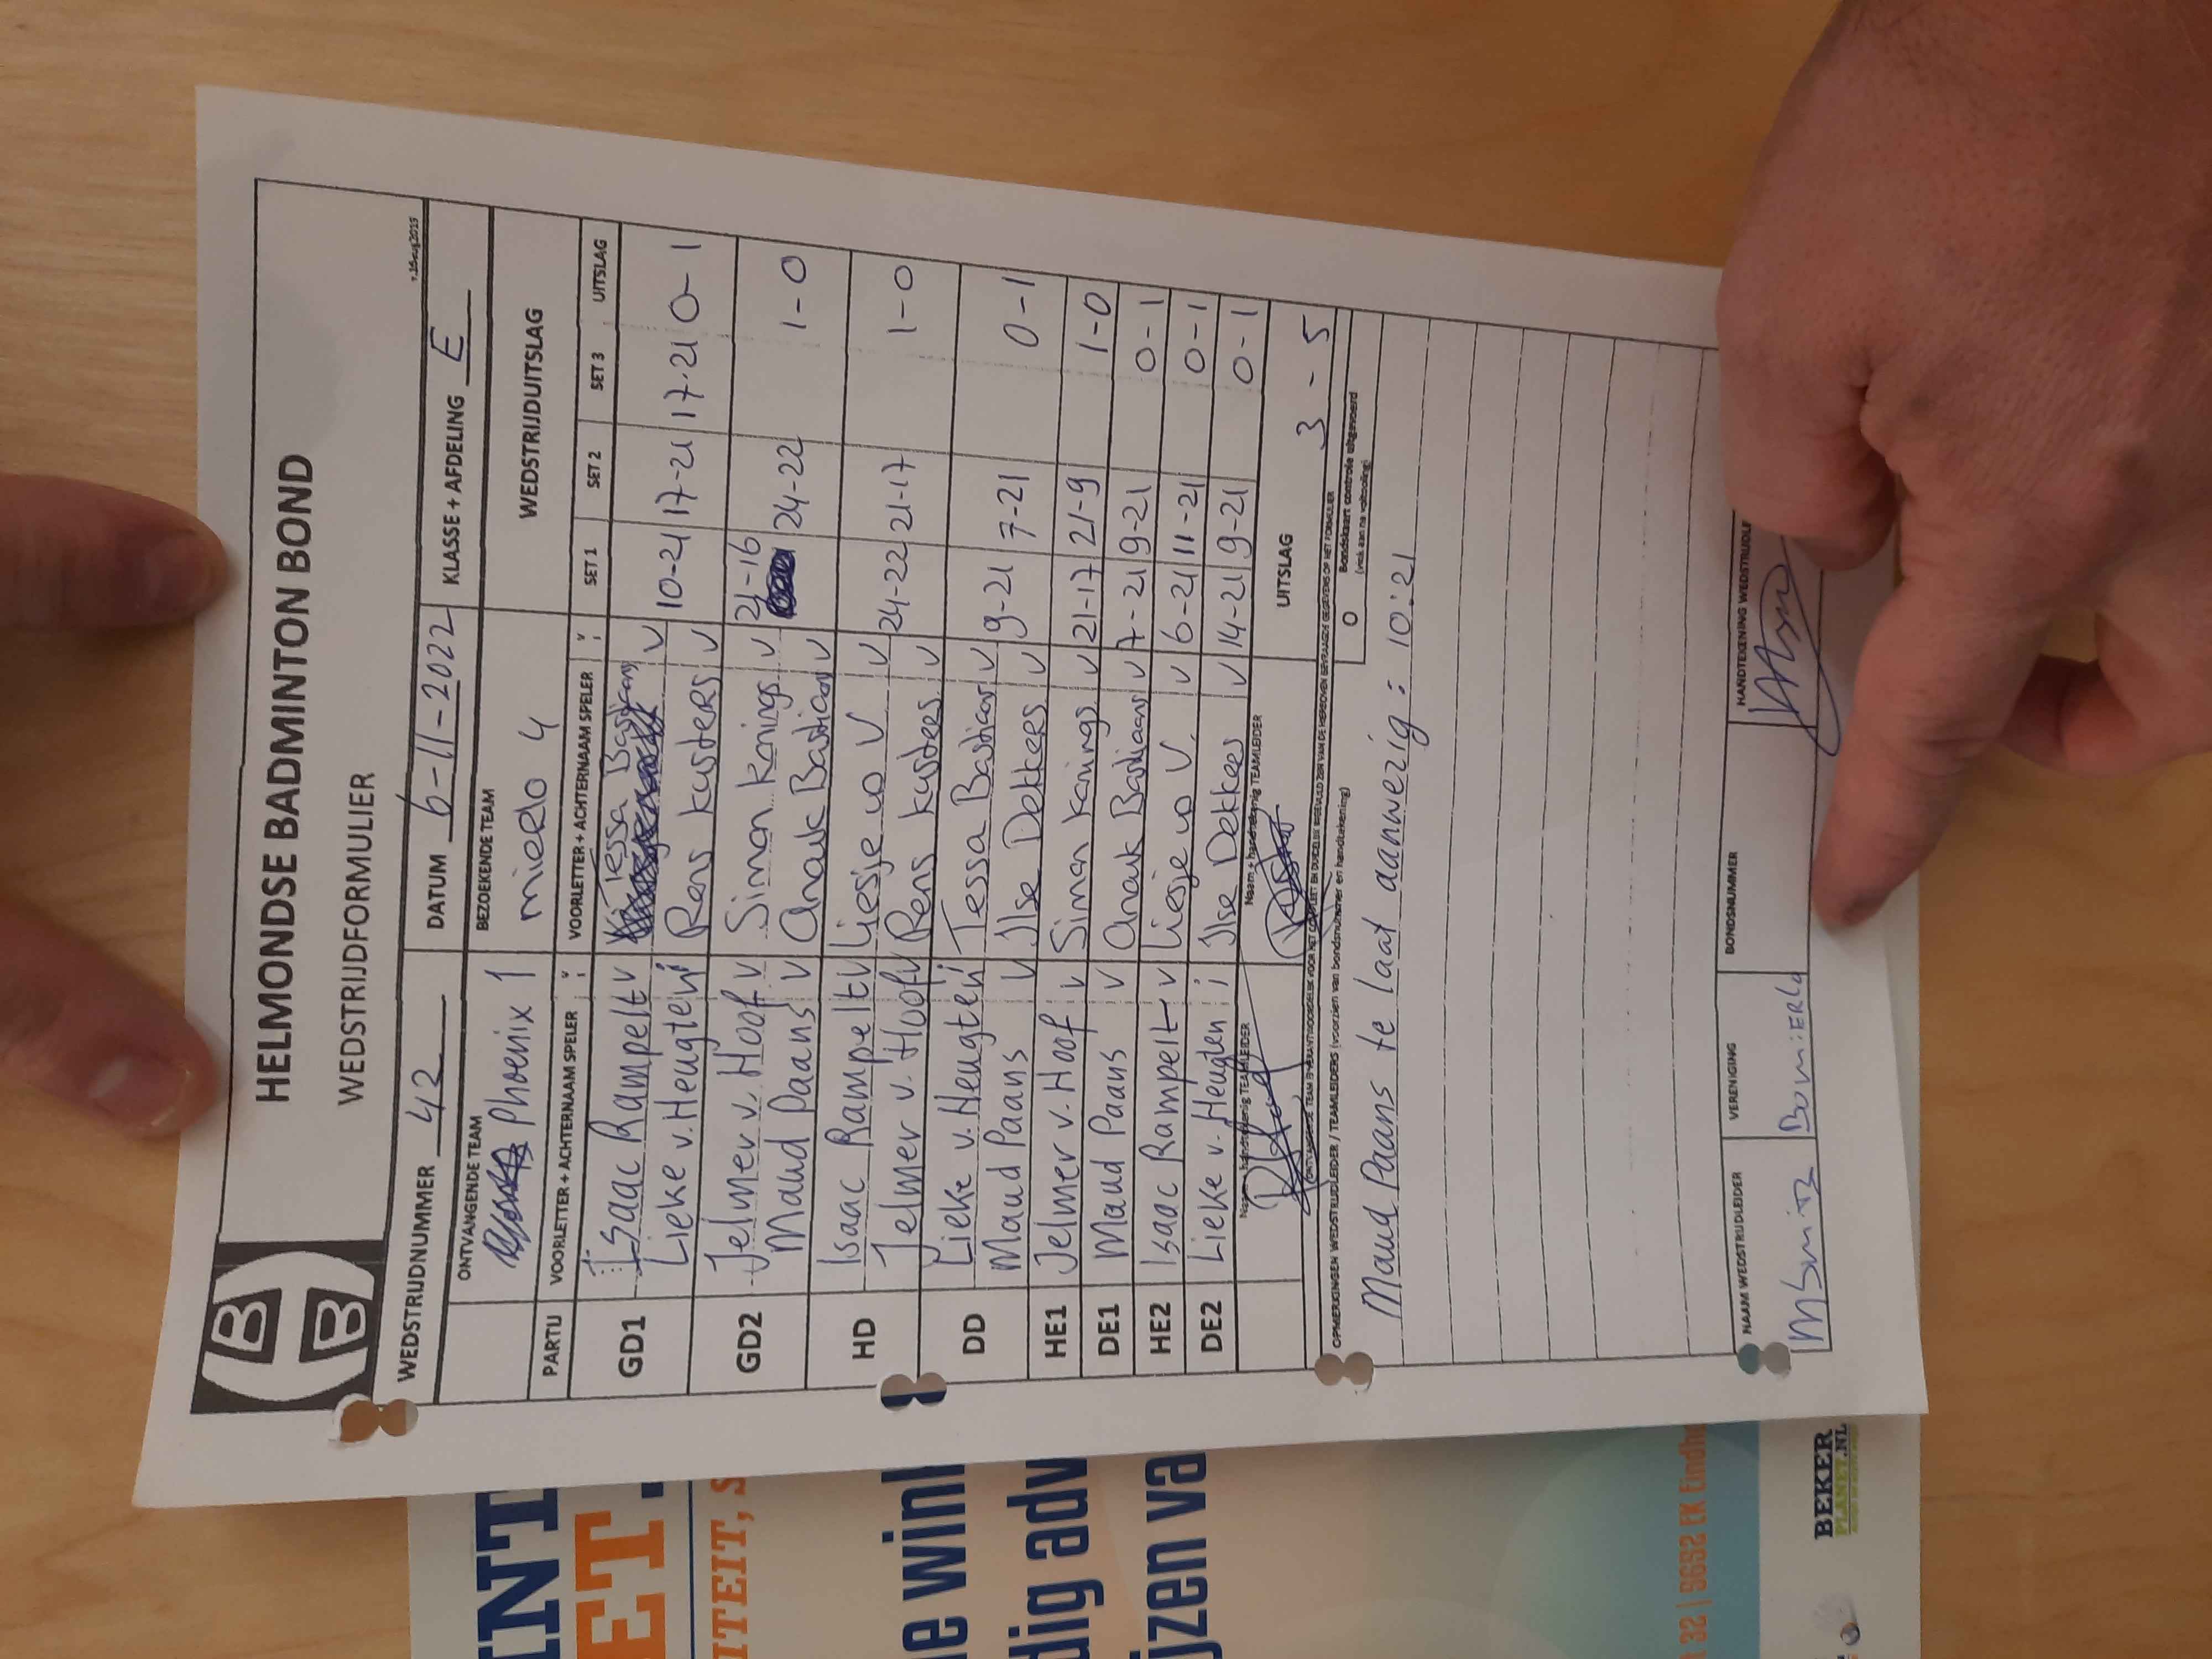 HELMONDSE BADMINTON BOND
WEDSTRIJDFORMULIER
v.16aug2015
WEDSTRIJDNUMMER 42 DATUM 6-11-2022 KLASSE + AFDELING E
ONTVANGENDE TEAM BEZOEKENDE TEAM WEDSTRIJDUITSLAG
Phoenix 1 mierlo 4
PARTIJ VOORLETTER + ACHTERNAAM SPELER v VOORLETTER + ACHTERNAAM SPELER v SET 1 SET 2 SET 3 UITSLAG
GD1 Isaac Rampelt v Tessa Bastiaans v 10-21 17-21 17-21 0-1
Lieke v. Heugten Rens Kusters v
GD2 Jelmer v. Hoof v Simon Konings v 21-16 24-22 1-0
Maud Paans v Anouk Bastiaans v
HD Isaac Rampelt v Liesje vo V v 24-22 21-17 1-0
Jelmer v. Hoof v Rens Kusters v
DD Lieke v. Heugten Tessa Bastiaans v 9-21 7-21 0-1
Maud Paans v Ilse Dekkers v
HE1 Jelmer v. Hoof v Simon Konings v 21-17 21-9 1-0
DE1 Maud Paans v Anouk Bastiaans v 7-21 9-21 0-1
HE2 Isaac Rampelt v Liesje vo V. v 6-21 11-21 0-1
DE2 Lieke v. Heugten Ilse Dekkers v 14-21 9-21 0-1
Naam + handtekenig TEAMLEIDER Naam + handtekenig TEAMLEIDER UITSLAG 3-5
ONTVANGENDE TEAM IS VERANTWOORDELIJK VOOR HET COMPLEET EN DUIDELIJK INGEVULD ZIJN VAN DE HIERBOVEN GEVRAAGDE GEGEVENS OP HET FORMULIER
OPMERKINGEN WEDSTRIJDLEIDER / TEAMLEIDERS (voorzien van bondsnummer en handtekening) O Bondskaart controle uitgevoerd
(vink aan na voltooiing)
Maud Paans te laat aanwezig: 10:21
NAAM WEDSTRIJDLEIDER VERENIGING BONDSNUMMER HANDTEKENING WEDSTRIJDLE
M Smits BCMIERLO
INT
ET.
ITEIT, S
e winl
dig adv
ijzen va
32 | 5652 EK Eindho
BEKER
PLANET.NL